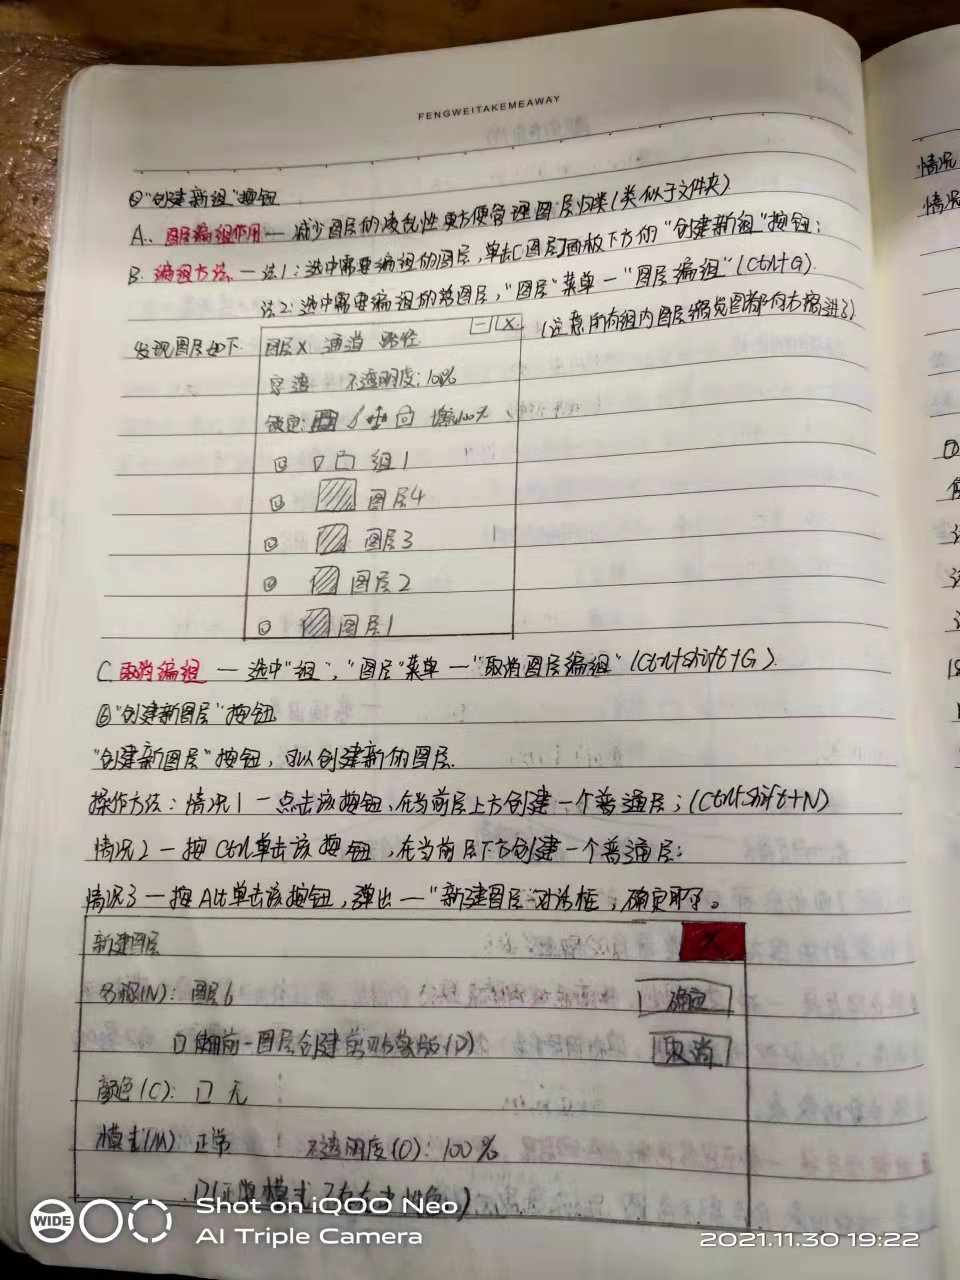 FENGWEITAKEMEAWAY
⑤"创建新组"按钮
A、图层编组作用—减少图层的凌乱性更方便管理图层归类(类似于文件夹)
B、编组方法—法1:选中需要编组的图层,单击[图层]面板下方的"创建新组"按钮;
法2:选中需要编组的若图层,"图层"菜单—"图层编组"(Ctrl+G).
(注意所有组内图层缩览图都向右缩进了)
发现图层如下
图层X 通道 路径
穿透 不透明度:100%
锁定: 填充100%
组1
图层4
图层3
图层2
图层1
C.取消编组—选中"组","图层"菜单—"取消图层编组"(Ctrl+shift+G).
⑥"创建新图层"按钮
"创建新图层"按钮,可以创建新的图层.
操作方法:情况1—点击该按钮,在当前层上方创建一个普通层;(Ctrl+shift+N)
情况2—按Ctrl单击该按钮,在当前层下方创建一个普通层;
情况3—按Alt单击该按钮,弹出一"新建图层"对话框,确定即可。
新建图层 X
名称(N):图层6 确定
口使用前一图层创建剪贴蒙版(P) 取消
颜色(C):口无
模式(M):正常 不透明度(O):100%
口(正常模式
情况
情况
WIDE
Shot on iQOO Neo
AI Triple Camera
2021.11.30 19:22